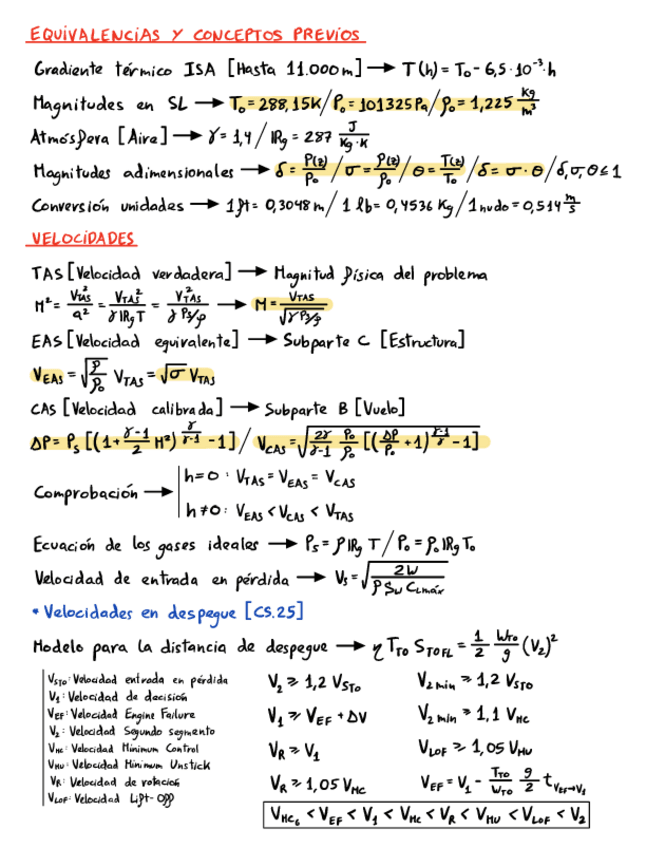 EQUIVALENCIAS Y CONCEPTOS PREVIOS
Gradiente térmico ISA [Hasta 11.000m] → T(h) = T₀ - 6,5·10⁻³·h
Magnitudes en SL → T₀ = 288,15K / P₀ = 101325Pa / ρ₀ = 1,225 Kg/m³
Atmósfera [Aire] → γ = 1,4 / IRg = 287 J/Kg·K
Magnitudes adimensionales → δ = P(z)/P₀ / σ = ρ(z)/ρ₀ / θ = T(z)/T₀ / δ = σ·θ / δ,σ,θ ≤ 1
Conversión unidades → 1 ft = 0,3048 m / 1 lb = 0,4536 Kg / 1 nudo = 0,514 m/s
VELOCIDADES
TAS [Velocidad verdadera] → Magnitud física del problema
M² = V²TAS/a² = V²TAS/γ IRg T = V²TAS/γ Ps/ρ → M = VTAS/√(γ Ps/ρ)
EAS [Velocidad equivalente] → Subparte C [Estructura]
VEAS = √(ρ/ρ₀) VTAS = √σ VTAS
CAS [Velocidad calibrada] → Subparte B [Vuelo]
ΔP = Ps [(1 + γ-1/2 M²)^(γ/γ-1) - 1] / VCAS = √(2γ/γ-1 P₀/ρ₀ [(ΔP/P₀ + 1)^(γ-1/γ) - 1])
Comprobación → h = 0 : VTAS = VEAS = VCAS
h ≠ 0 : VEAS < VCAS < VTAS
Ecuación de los gases ideales → Ps = ρ IRg T / P₀ = ρ₀ IRg T₀
Velocidad de entrada en pérdida → Vs = √(2W/ρ Sw CLmáx)
* Velocidades en despegue [CS.25]
Modelo para la distancia de despegue → η TTO STOFL = 1/2 WTO/g (V₂)²
VSTO: Velocidad entrada en pérdida
V₁: Velocidad de decisión
VEF: Velocidad Engine Failure
V₂: Velocidad Segundo segmento
VMC: Velocidad Minimum Control
VMU: Velocidad Minimum Unstick
VR: Velocidad de rotación
VLOF: Velocidad Lift-Off
V₂ ≥ 1,2 VSTO
V₂ min ≥ 1,2 VSTO
V₁ ≥ VEF + ΔV
V₂ min ≥ 1,1 VMC
VR ≥ V₁
VLOF ≥ 1,05 VMU
VR ≥ 1,05 VMC
VEF = V₁ - TTO/WTO g/2 tVEF→V₁
VMCG < VEF < V₁ < VMC < VR < VMU < VLOF < V₂